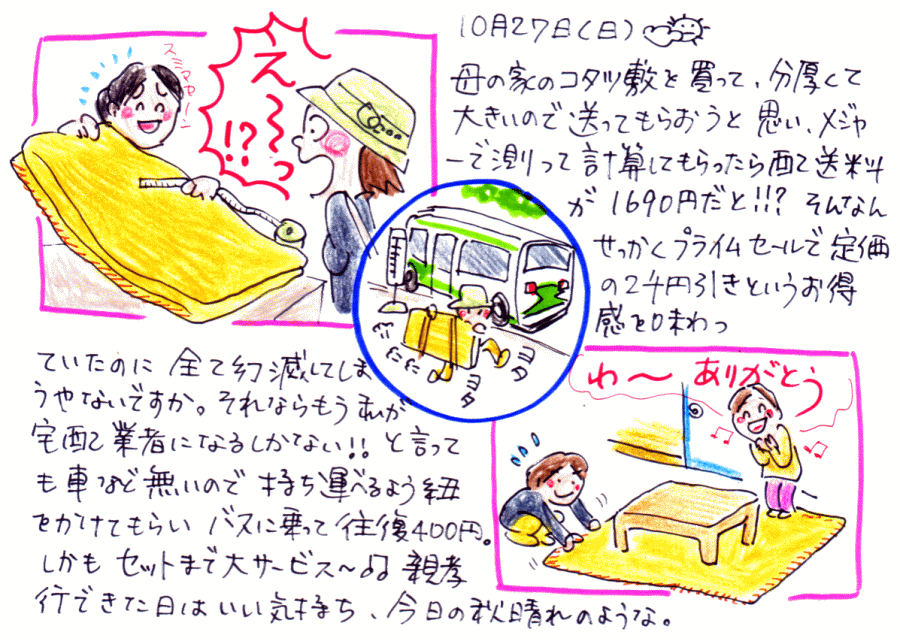 スミマセーン
え~~っ
!?
10月27日(日)
母の家のコタツ敷を買って、分厚くて
大きいので送ってもらおうと思い、メジャ
ーで測って計算してもらったら配送料
が1690円だと!!? そんなん
せっかくプライムセールで定価
の2千円引きというお得
感を味わっ
ていたのに全て幻滅してしま
うやないですか。それならもう私が
宅配業者になるしかない!! と言って
も車など無いので持ち運べるよう紐
をかけてもらいバスに乗って往復400円。
しかもセットまで大サービス~♫ 親孝
行できた日はいい気持ち、今日の秋晴れのような。
ヨタ
ヨタ
わ~ ありがとう